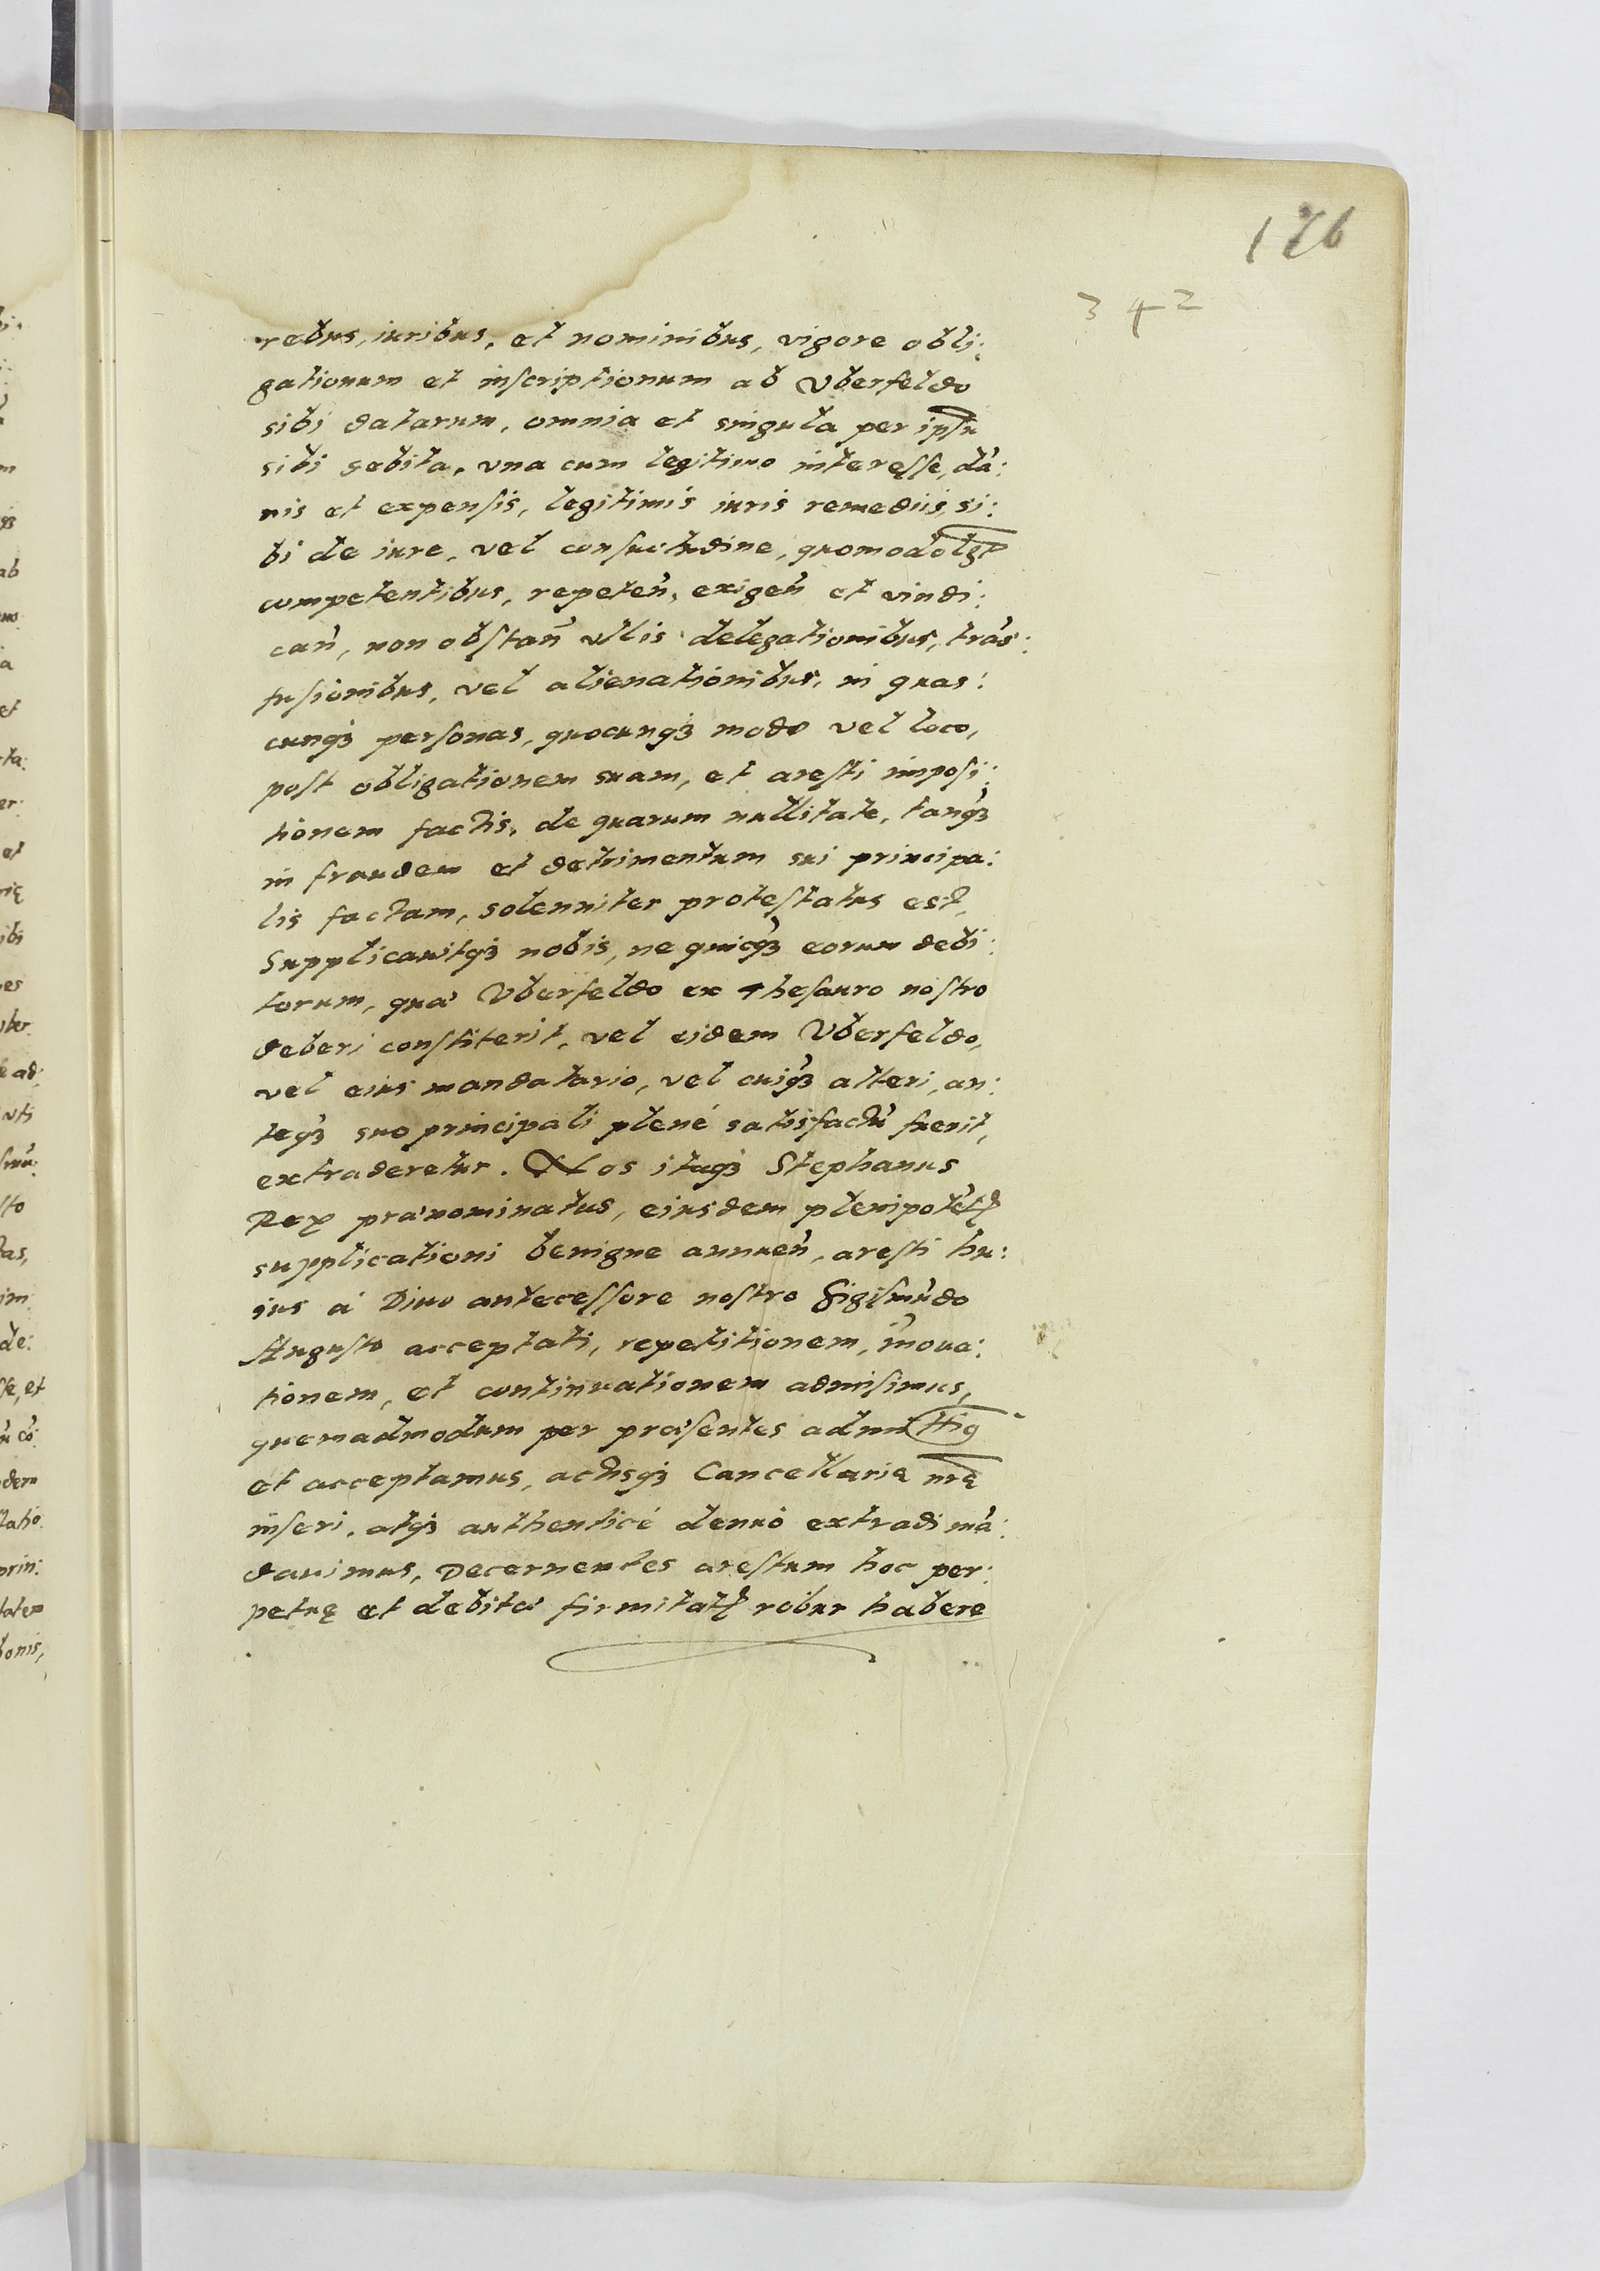 176
342
rebus, iuribus, et nominibus, vigore obli:
gationum et inscriptionum ab Vberfeldo
sibi datarum, omnia et singula per ipsū
sibi debita, vna cum legitimo interesse, dā:
nis et expensis, legitimis iuris remediis, si:
bi de iure, vel consuetudine, quomodolꝫ
competentibus, repeteñ, exigeñ et vindi:
cañ, non obstañ vllis delegationibus, trās:
fusionibus, vel alienationibus, in quas:
cunqꝫ personas, quocunqꝫ modo vel loco,
post obligationem suam, et aresti imposi:
tionem factis, de quarum nullitate, tanqꝫ
in fraudem et detrimentum sui principa:
lis factam, solenniter protestatus est,
Supplicauitqꝫ nobis, ne quicqꝫ eorum debi:
torum, quæ Vberfeldo ex Thesauro nostro
deberi constiterit, vel eidem Vberfeldo,
vel eius mandatario, vel cuiqꝫ alteri, an:
teqꝫ suo principali plené satisfactū fuerit,
extraderetur. Nos itaqꝫ Stephanus
Rex prænominatus, eiusdem plenipotētꝭ
supplicationi benigne annueñ, aresti hu:
ius á Diuo antecessore nostro Sigismūdo
Augusto acceptati, repetitionem, īnoua:
tionem, et continuationem admisimus,
quemadmodum per præsentes admittimꝰ
et acceptamus, actisqꝫ Cancellarię nrę
inseri, atqꝫ authenticé denuò extradi mā:
dauimus, Decernentes arestum hoc per:
petuę et debitæ firmitatꝭ robur habere